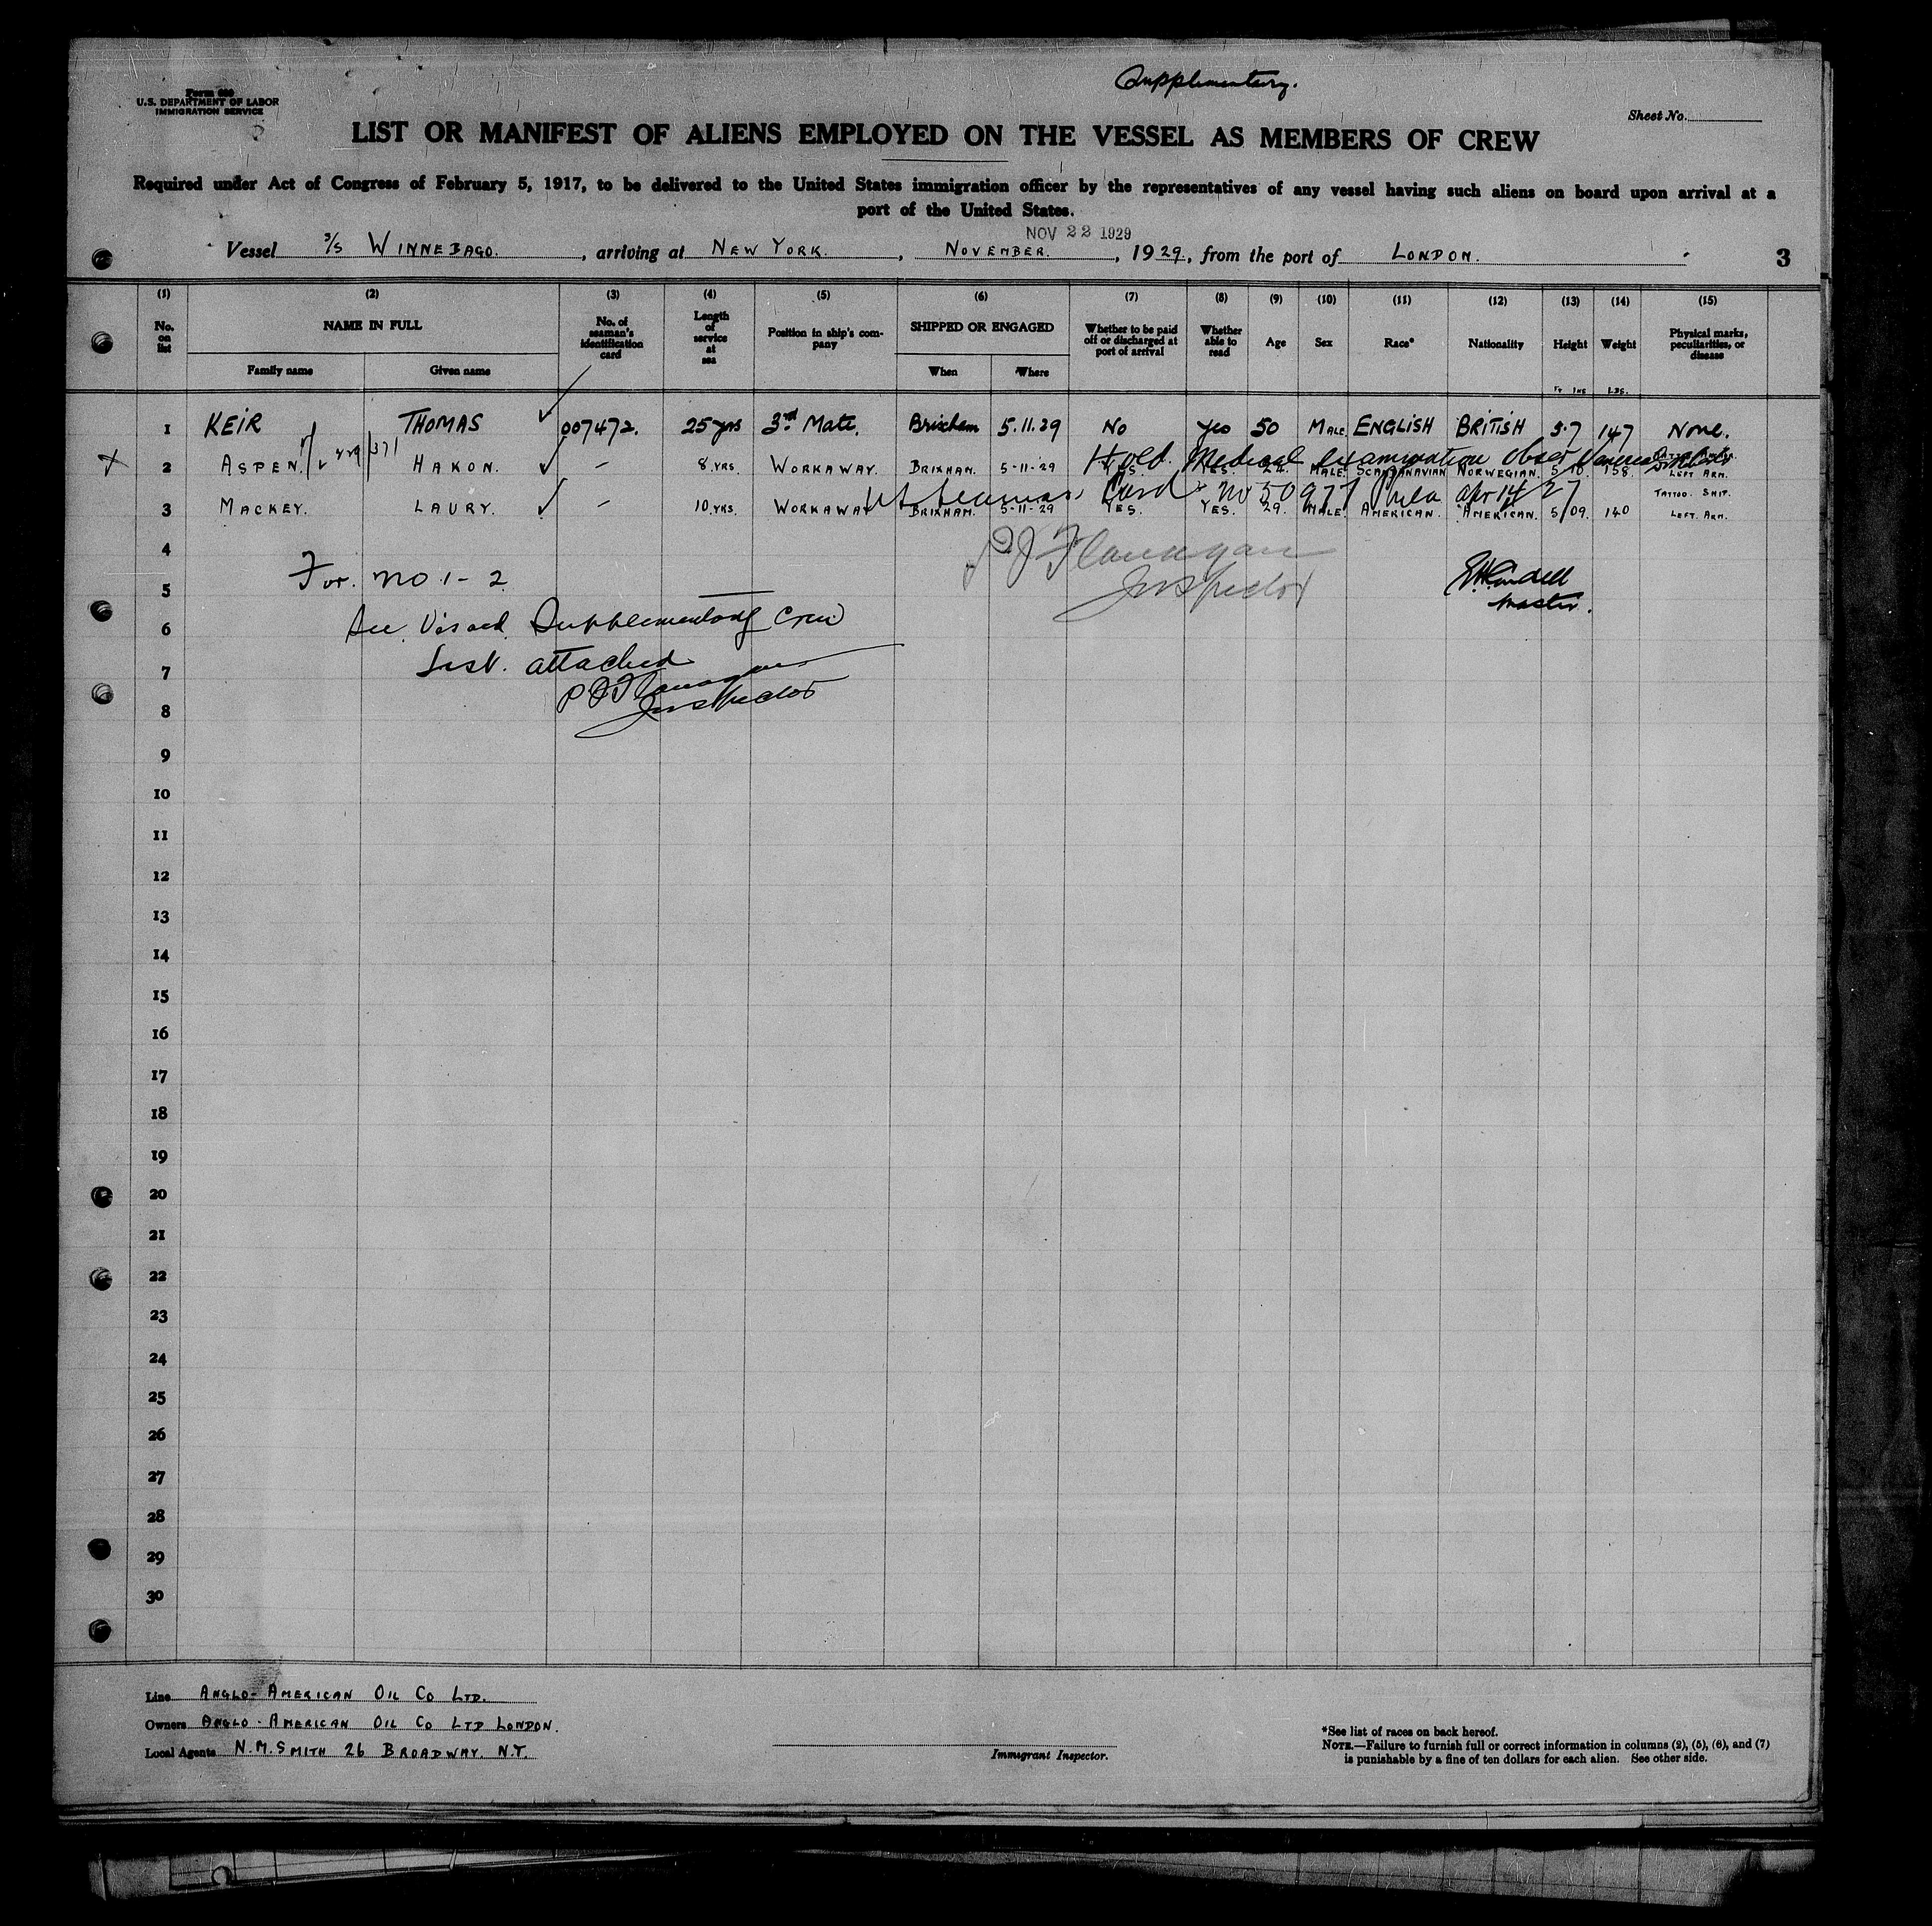 Supplementary.
Form 680
U.S. DEPARTMENT OF LABOR
IMMIGRATION SERVICE
Sheet No.
LIST OR MANIFEST OF ALIENS EMPLOYED ON THE VESSEL AS MEMBERS OF CREW
Required under Act of Congress of February 5, 1917, to be delivered to the United States immigration officer by the representatives of any vessel having such aliens on board upon arrival at a
port of the United States.
NOV 22 1929
Vessel S/S WINNEBAGO. , arriving at NEW YORK. , NOVEMBER. , 1929, from the port of LONDON. 3
(1) (2) (3) (4) (5) (6) (7) (8) (9) (10) (11) (12) (13) (14) (15)
No. on list NAME IN FULL No. of seaman's identification card Length of service at sea Position in ship's company SHIPPED OR ENGAGED Whether to be paid off or discharged at port of arrival Whether able to read Age Sex Race* Nationality Height Weight Physical marks, peculiarities, or disease
Family name Given name When Where
Ft Ins Lbs.
1 KEIR THOMAS 007472. 25 yrs 3rd Mate. Brixham 5.11.29 No Yes 50 MALE ENGLISH BRITISH 5.7 147 None.
Hold Medical examination
2 ASPEN. 429/371 HAKON. – 8.YRS. WORKAWAY. BRIXHAM. 5-11-29 YES. MALE. SCANDANAVIAN NORWEGIAN 5 10 158. LEFT ARM.
Card No 50977 Phila Apr 14/27
3 MACKEY. LAURY. – 10.YRS. WORKAWAY BRIXHAM. 5-11-29 YES. YES. 29. MALE. AMERICAN. AMERICAN. 5/09. 140 TATTOO. SHIP. LEFT. ARM.
4
P J Flanagan
Inspector
Master.
For. No 1 - 2
5
See Visaed Supplementary Crew
6
List. attached
7
P J Flanagan
Inspector
8
9
10
11
12
13
14
15
16
17
18
19
20
21
22
23
24
25
26
27
28
29
30
Line ANGLO-AMERICAN OIL CO LTD.
Owners ANGLO-AMERICAN OIL CO LTD LONDON.
Local Agents N.M.SMITH 26 BROADWAY. N.Y.
Immigrant Inspector.
*See list of races on back hereof.
NOTE.—Failure to furnish full or correct information in columns (2), (5), (6), and (7)
is punishable by a fine of ten dollars for each alien. See other side.